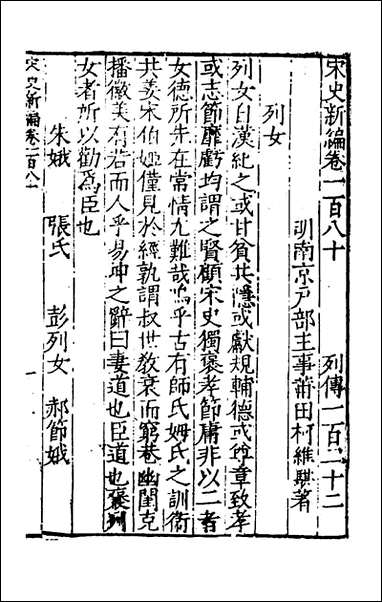 宋史新編卷一百八十　列傳一百二十二
明南京戶部主事莆田柯維騏著
列女
列女自漢紀之或甘貧共隱或獻規輔德或尊章致孝
或志節靡虧均謂之賢顧宋史獨褒孝節庸非以二者
女德所先在常情尤難哉嗚乎古有師氏姆氏之訓衛
共姜宋伯姬僅見於經孰謂叔世教衰而窮巷幽閨克
播徽美有若而人乎易坤之辭曰妻道也臣道也褒列
女者所以勸爲臣也
朱娥　張氏　彭列女　郝節娥
宋史新編卷一百八十
一